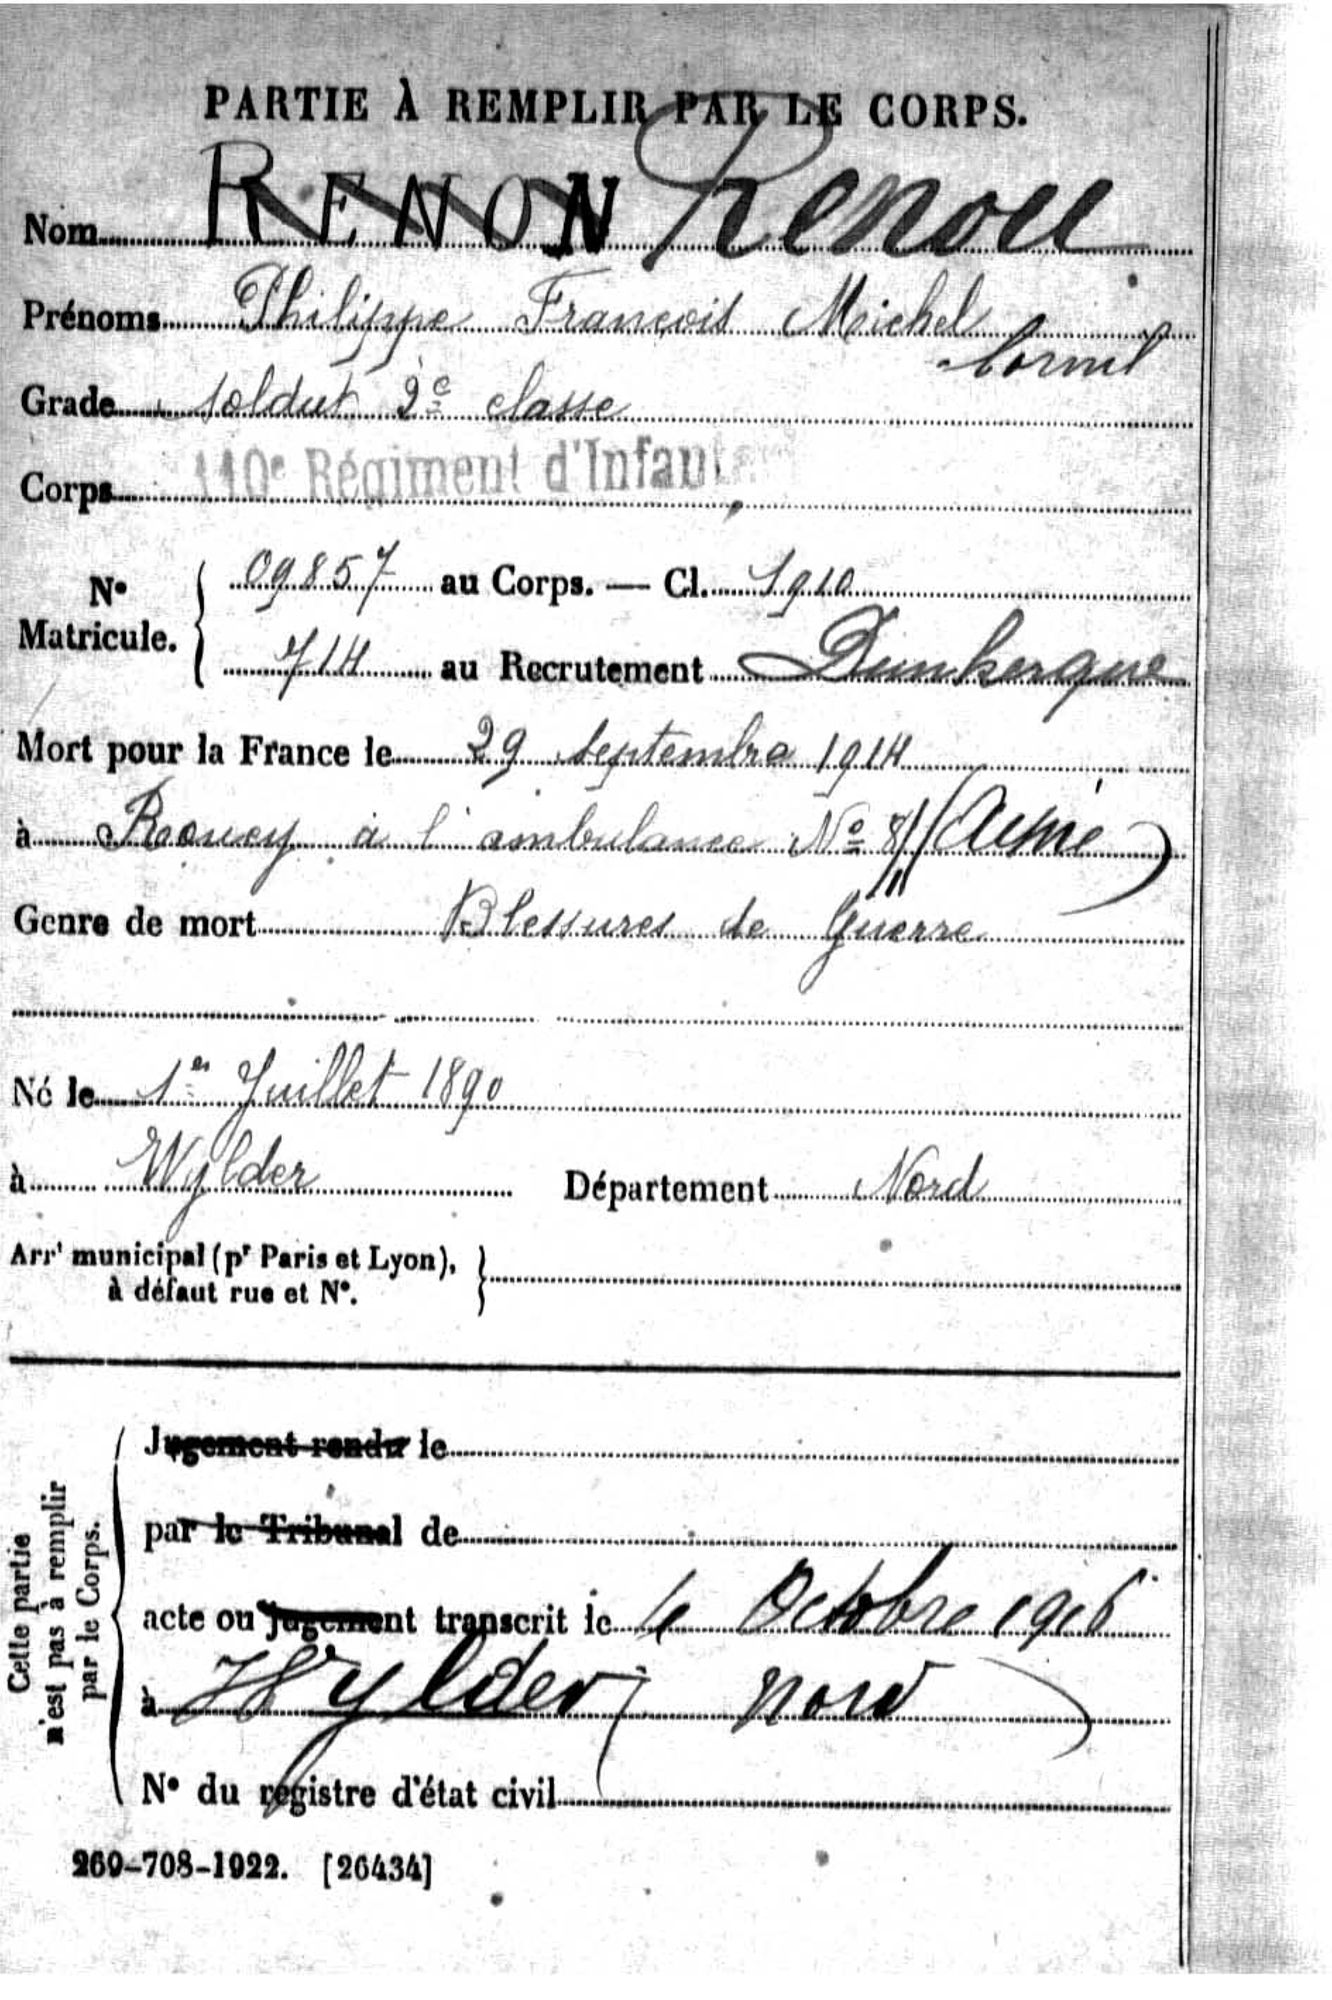 PARTIE À REMPLIR PAR LE CORPS.
Nom RENON Renou
Prénoms Philippe François Michel
Cornil
Grade soldat 2e classe
Corps 110e Régiment d'Infant
No Matricule. { 09857 au Corps. — Cl. 1910
714 au Recrutement Dunkerque
Mort pour la France le 29 septembre 1914
à Roucy a l'ambulance No 8/ (Aisne)
Genre de mort Blessures de Guerre
Né le 1er Juillet 1890
à Wylder Département Nord
Arrt municipal (pr Paris et Lyon), }
à défaut rue et No.
Cette partie
n'est pas à remplir
par le Corps.
Jugement rendu le
par le Tribunal de
acte ou jugement transcrit le 4 Octobre 1916
à Wylder (Nord)
No du registre d'état civil
260-708-1922. [26434]